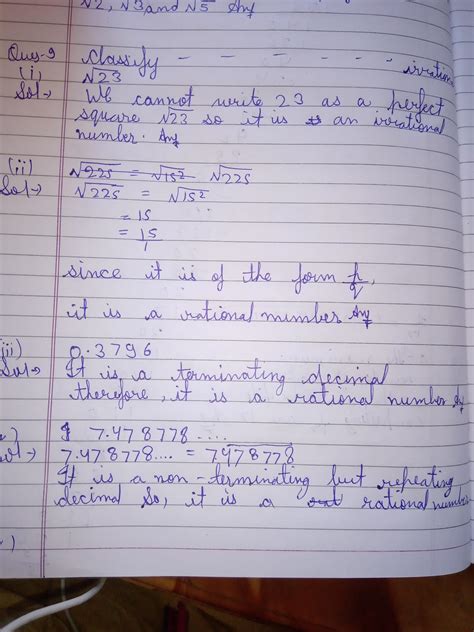 √2, √3 and √5 Ans
Ques-9 Classify - - - - - - - irration
(i) √23
Sol→ We cannot write 23 as a perfect
square √23 so it is an irrational
number. Ans
(ii) √225 = √15² √225
Sol→ √225 = √15²
= 15
= 15/1
since it is of the form p/q,
it is a rational number Ans
iii) 0.3796
Sol→ It is a terminating decimal
therefore, it is a rational number, A
) 7.478778....
ol→ 7.478778.... = 7.478778
It is a non-terminating but repeating
decimal So, it is a rational number
)